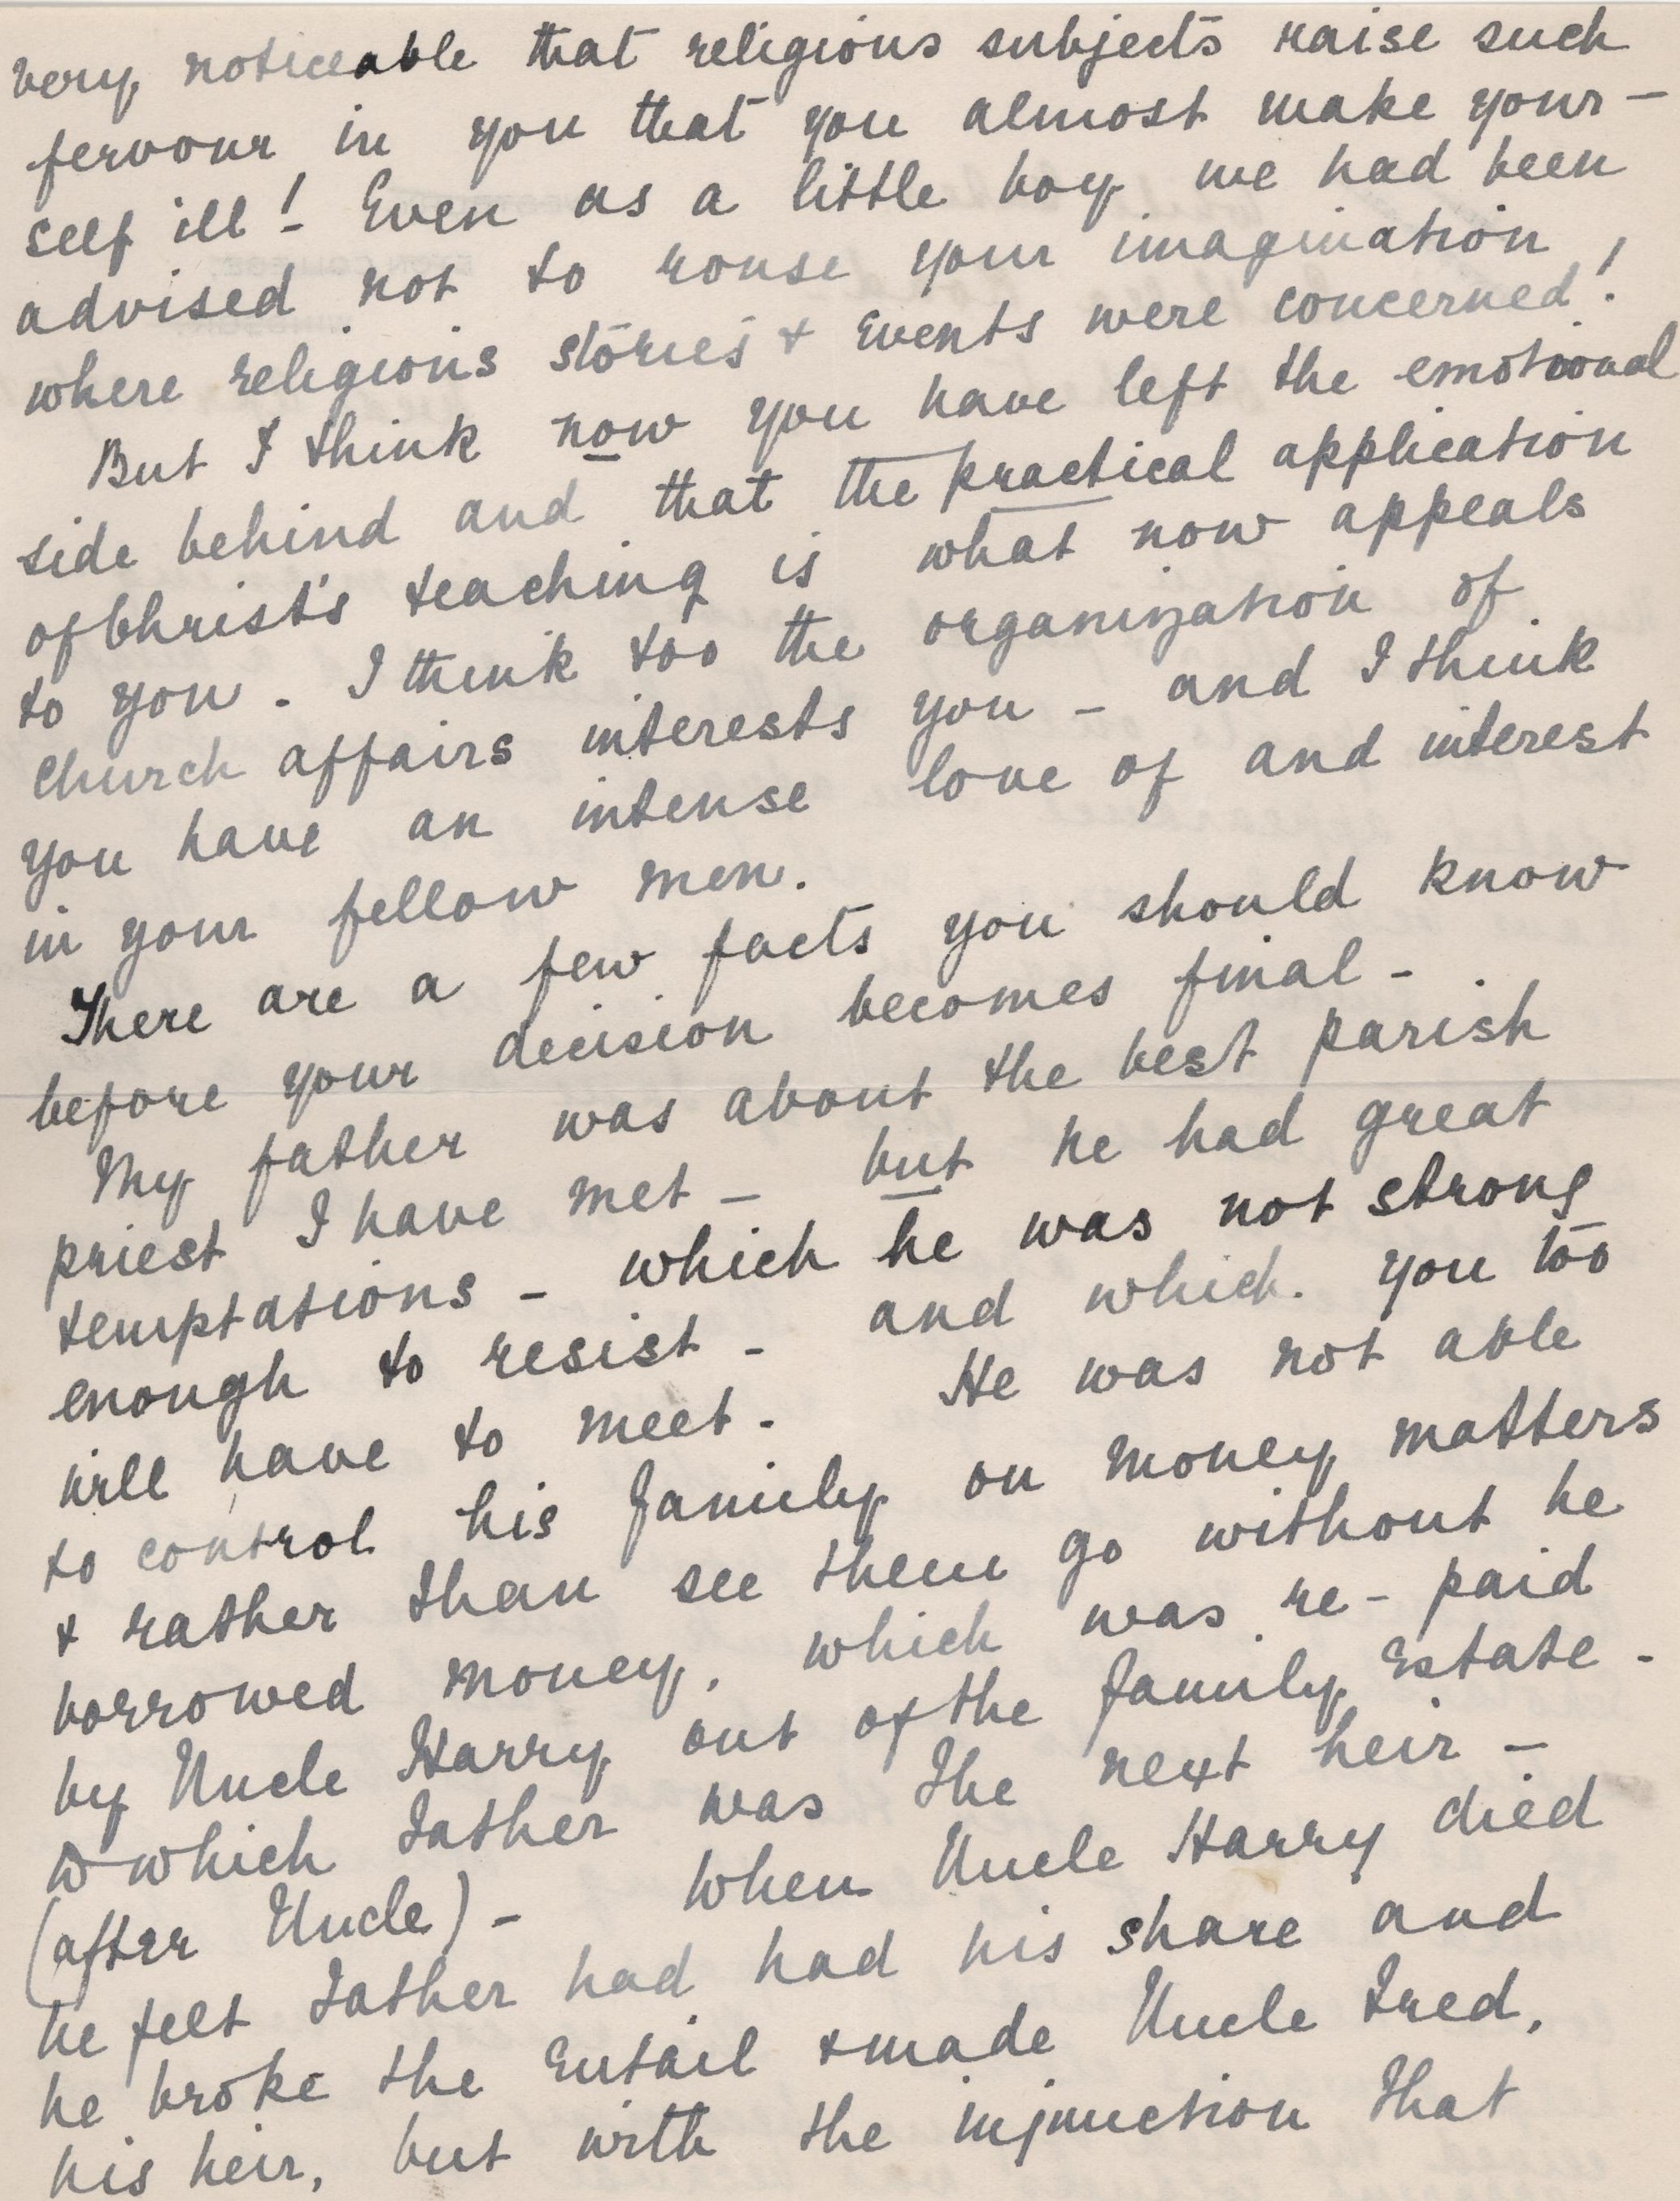 very noticeable that religious subjects raise such
fervour in you that you almost make your-
self ill! - Even as a little boy we had been
advised not to rouse your imagination
where religious stories & events were concerned!
But I think now you have left the emotional
side behind and that the practical application
of Christ's teaching is what now appeals
to you. I think too the organization of
church affairs interests you - and I think
you have an intense love of and interest
in your fellow men.
There are a few facts you should know
before your decision becomes final -
My father was about the best parish
priest I have met - but he had great
temptations - which he was not strong
enough to resist - and which you too
will have to meet. He was not able
to control his family on money matters
& rather than see them go without he
borrowed money, which was re-paid
by Uncle Harry out of the family Estate -
to which Father was the next heir -
(after Uncle) - When Uncle Harry died
he felt Father had had his share and
he broke the Entail & made Uncle Fred,
his heir, but with the injunction that